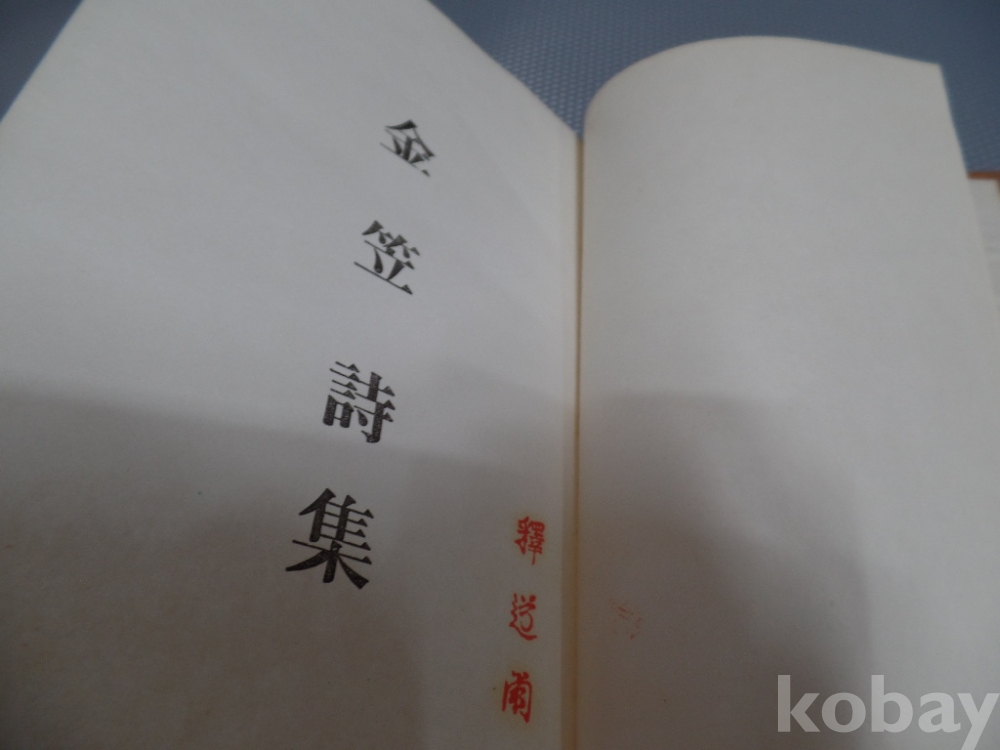 金笠詩集
釋
kobay